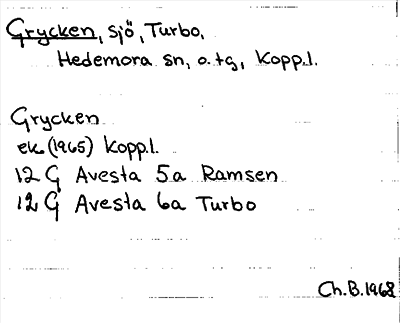 Grycken, sjö, Turbo,
Hedemora sn, o. tg, Kopp.l.
Grycken
ek. (1965) Kopp.l.
12 G Avesta 5a Ramsen
12 G Avesta 6a Turbo
Ch.B. 1968